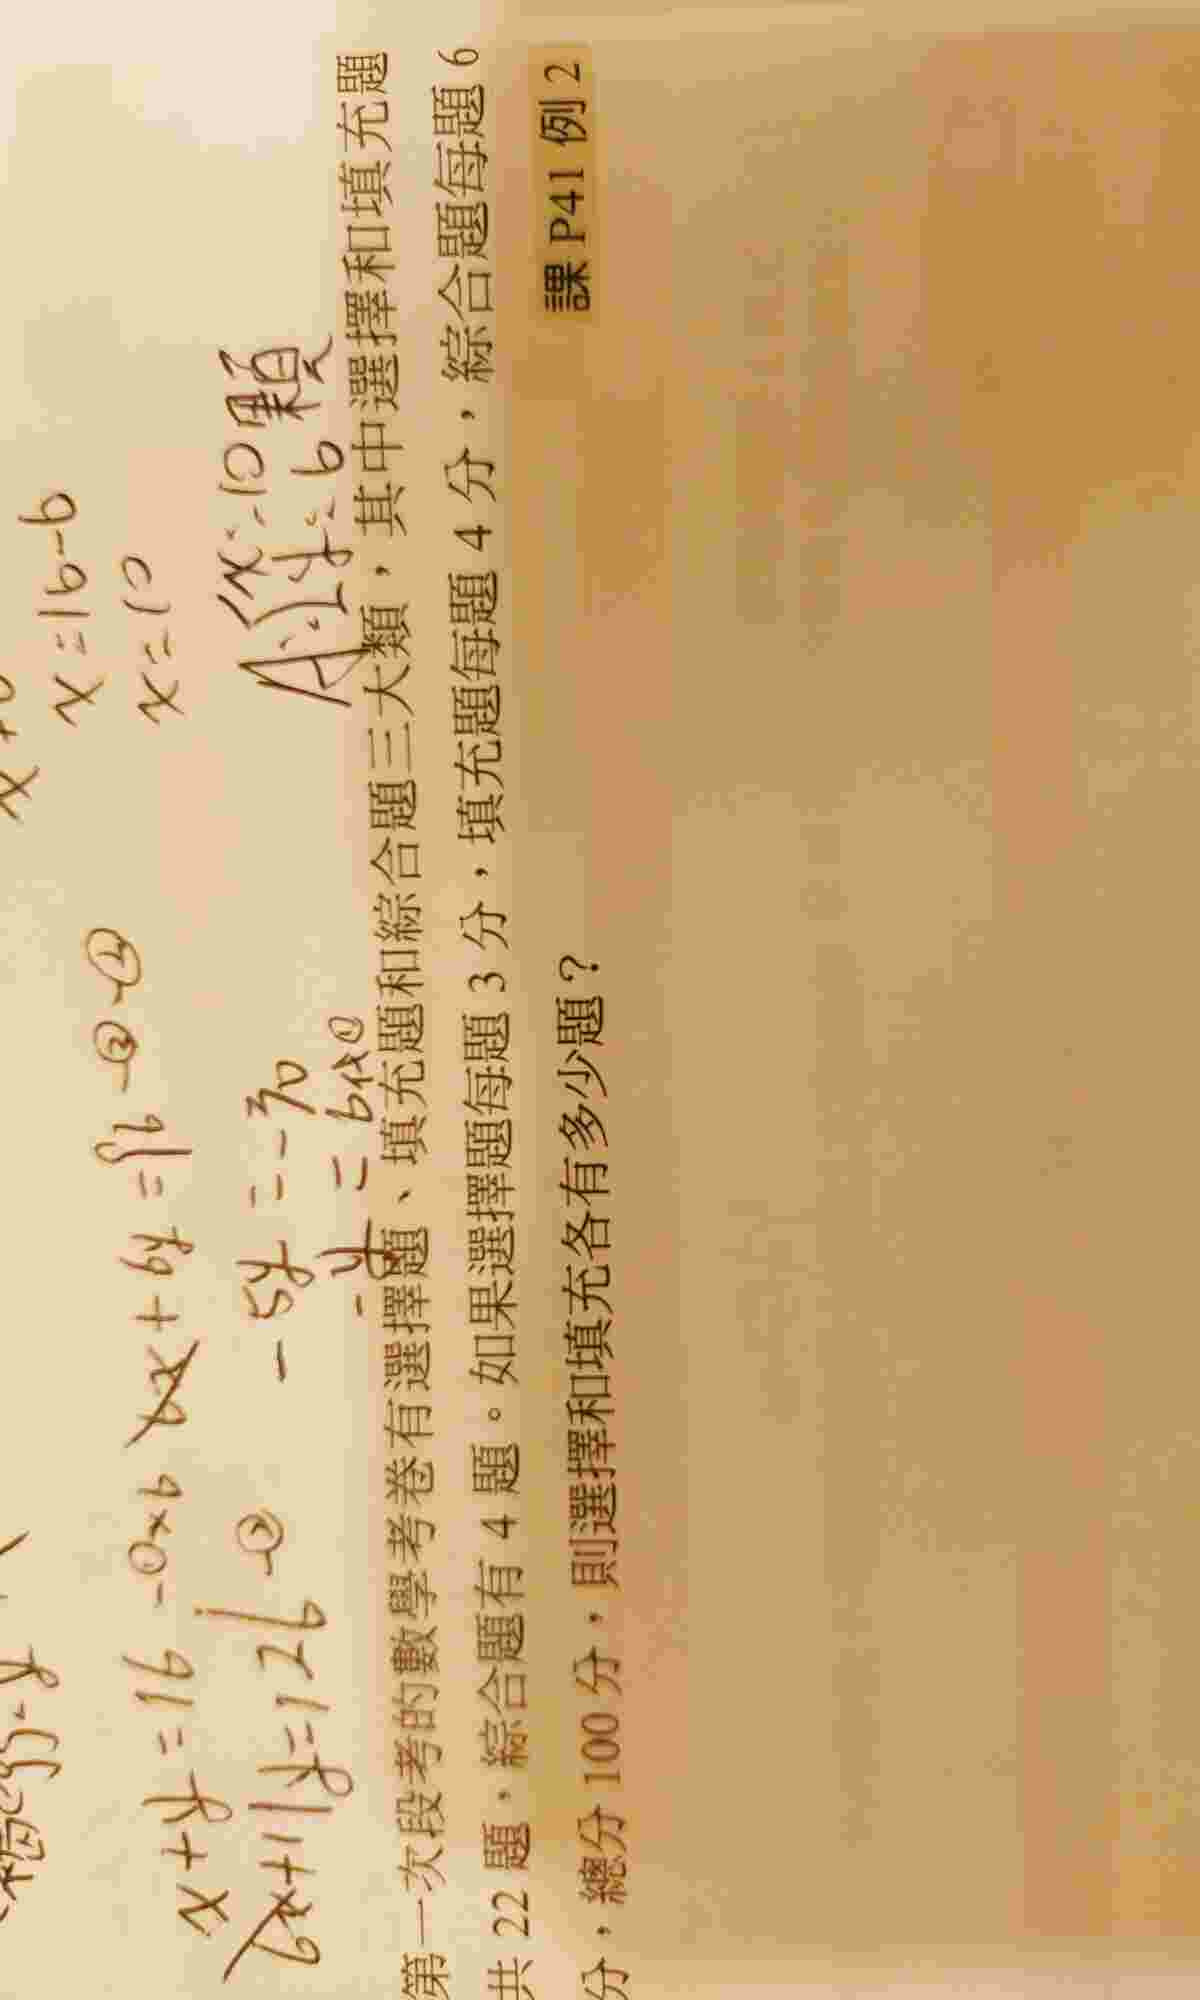 x=16-6
x=10
x+y=16 -①×6
6x+6y=96 -③-②
6x+11y=126 -②
-5y=-30
-y=6代①
A:{x=10顆
y=6
第一次段考的數學考卷有選擇題、填充題和綜合題三大類，其中選擇和填充題
共 22 題，綜合題有 4 題。如果選擇題每題 3 分，填充題每題 4 分，綜合題每題 6
分，總分 100 分，則選擇和填充各有多少題？
課 P41 例 2